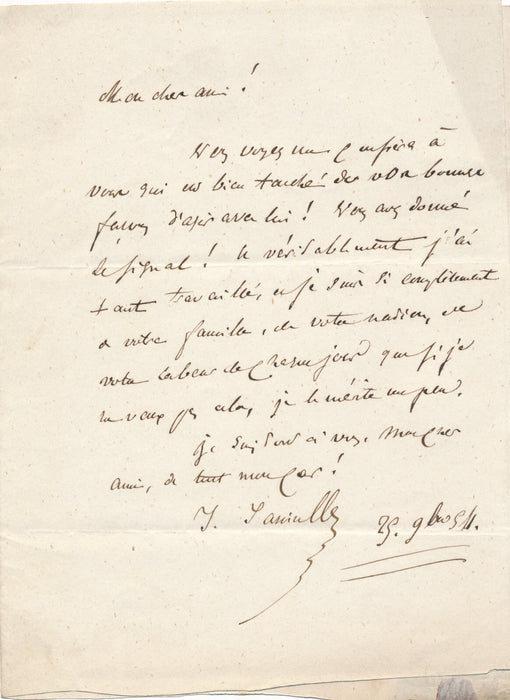 Mon cher ami !
Vous voyez un confrère à
vous qui est bien touché de votre bonne
façon d'agir avec lui ! Vous avez donné
le signal ! et véritablement j'ai
tant travaillé, et je suis si complètement
de votre famille, de votre nation, de
votre labeur de chaque jour que si je
ne veux pas cela, je le mérite un peu.
je suis tout à vous, mon cher
ami, de tout mon cœur !
J.
25. 9bre 54.